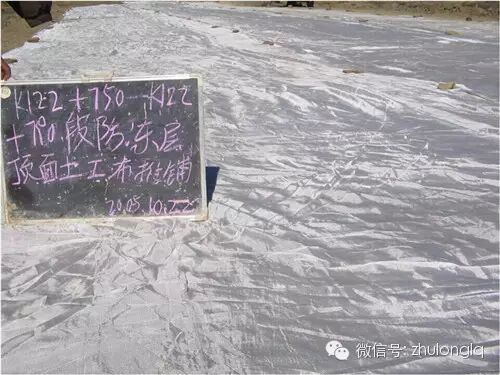 K122+750-K122
+790段防冻层
顶面土工布摊铺
2005.10.22
微信号: zhulonglq